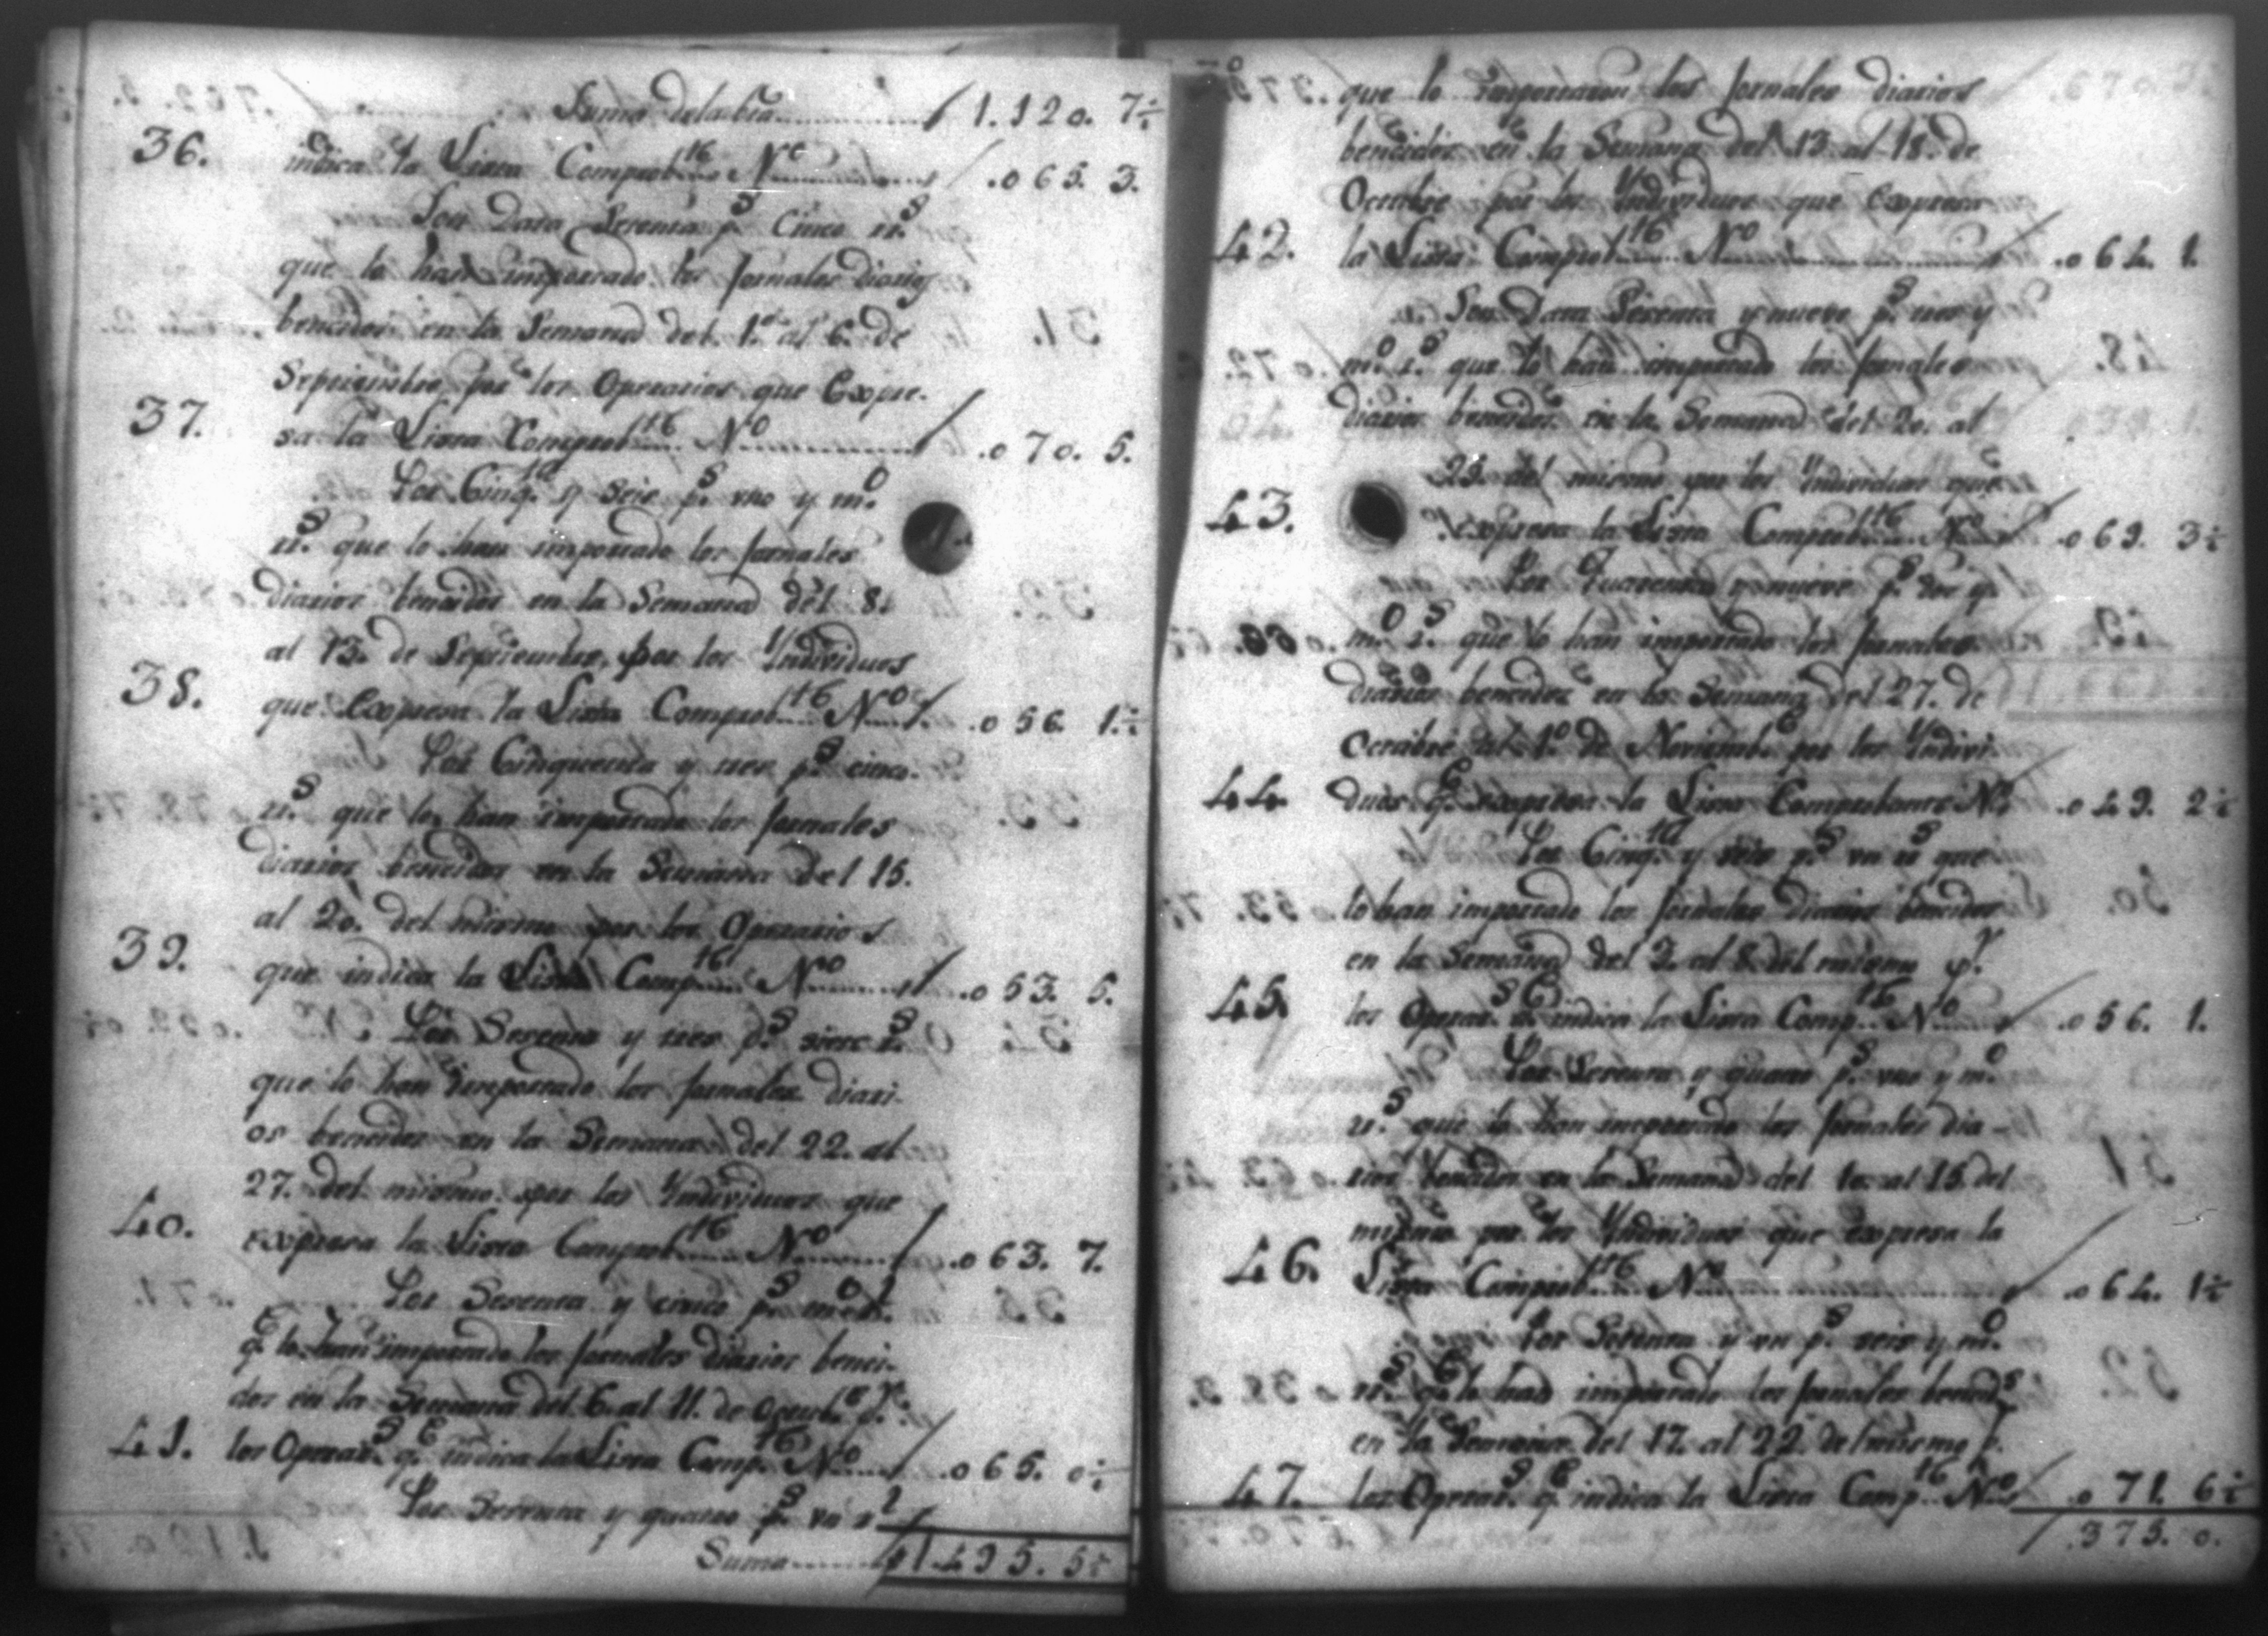 Suma de la bta. 1.120. 7½
36. indica la Lista Comprobte. No .065. 3.
Son Data Setenta ps. Cinco rs.
que lo han importado los Jornales diarios
bencidos en la Semana del 1o. al 6. de
Septiembre por los Operarios que Expre-
37. sa la Lista Comprobte. No .070. 5.
Los Cinqta. y Seis ps. uno y mo.
rs. que lo han importado los Jornales
diarios bencidos en la Semana del 8.
al 13. de Septiembre, por los Yndividuos
38. que Expresa la Lista Comprobte. No .056. 1½
Los Cinquenta y tres ps. cinco
rs. que lo han importado los Jornales
diarios bencidos en la Semana del 15.
al 20. del mismo por los Operarios
39. que indica la Lista Compte. No .053. 5.
Los Sesenta y tres ps. siete rs.
que lo han importado los Jornales diari-
os bencidos en la Semana del 22. al
27. del mismo por los Yndividuos que
40. expresa la Lista Comprobte. No .063. 7.
Los Sesenta y cinco ps. mo. rl.
qe. lo han importado los Jornales diarios benci-
dos en la Semana del 6. al 11. de Octube. pr.
41. los Operas. qe. indica la Lista Compte. No .065. 0½
Los Sesenta y quatro ps. un rl.
Suma 1.495. 5½
que lo importaron los Jornales diarios
bencidos en la Semana del 13. al 18. de
Octubre por los Yndividuos que Expresa
42. la Lista Comprobte. No .064. 1.
Son Data Sesenta y nueve ps. tres y
mo. rs. que lo han importado los Jornales
diarios bencidos en la Semana del 20. al
25. del mismo por los Yndividuos que
43. expresa la Lista Comprobte. No .069. 3½
Los Quarenta y nueve ps. dos y
mo. rs. que lo han importado los Jornales
diarios bencidos en la Semana del 27. de
Octubre al 1o. de Noviembe. por los Yndivi-
44. duos qe. expresa la Lista Comprobante No .049. 2½
Los Cinqta. y seis ps. un rs. que
lo han importado los Jornales diarios bencidos
en la Semana del 3. al 8. del mismo pr.
45. los Operas. qe. indica la Lista Compte. No .056. 1.
Los Sesenta y quatro ps. uno y mo.
rs. que lo han importado los Jornales dia-
rios bencidos en la Semana del 10. al 15. del
mismo por los Yndividuos que Expresa la
46. Lista Comprobte. No .064. 1½
Los Setenta y un ps. seis y mo.
rs. qe. lo han importado los Jornales bencids.
en la Semana del 17. al 22. del mismo pr.
47. los Operas. qe. indica la Lista Compte. No .071. 6½
.375. 0.